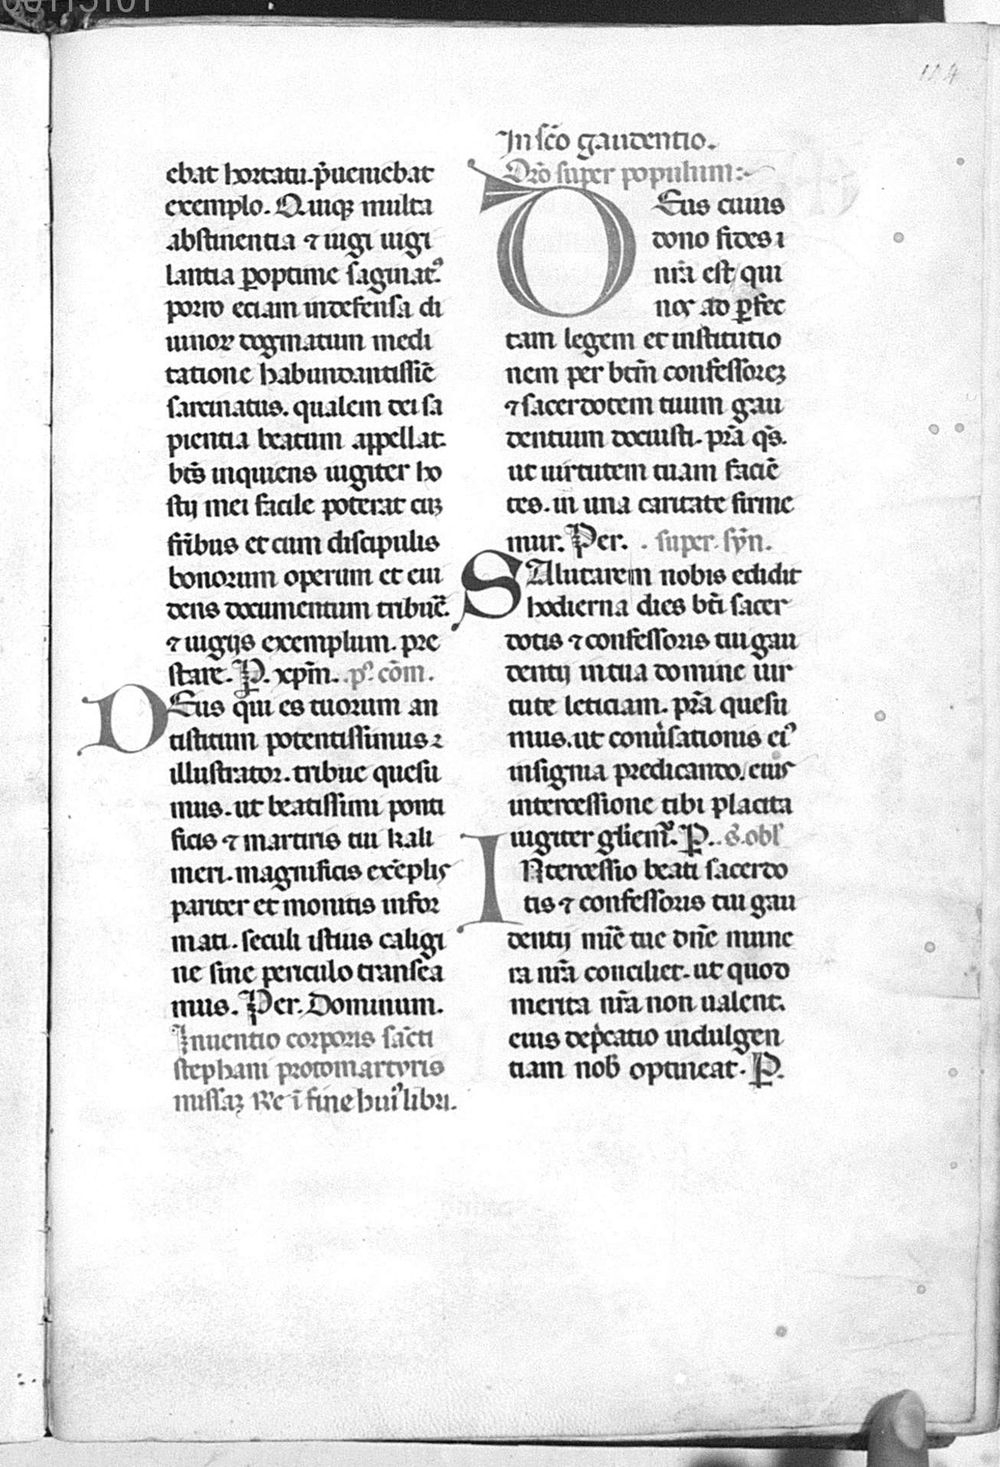 114
ebat hortatu. p̄ueniebat
exemplo. Quiqꝫ multa
abstinentia ⁊ iugi uigi
lantia ꝑoptime saginat᷒.
porro eciam indefensa di
uinoꝝ dogmatum medi
tatione habundantissiē
sarcinatus. qualem dei sa
pientia beatum appellat.
bt̄s inquiens iugiter ho
stij mei facile poterat cūꝫ
fr̄ibus et cum discipulis
bonorum operum et eui
dens documentum tribuē.
⁊ iugijs exemplum. pre
stare. P. xp̄m. p᷒. cōm.
Deus qui es tuorum an
tistitum potentissimus ⁊
illustrator. tribue quesu
mus. ut beatissimi ponti
ficis ⁊ martiris tui kali
meri. magnificis exēplis
pariter et monitis infor
mati. seculi istius caligi
ne sine periculo transea
mus. Per. Dominum.
Inuentio corporis sācti
stephani protomartyris
missaꝫ Re ī fine hui᷒ libri.
In sc̄o gaudentio.
Or̄o super populum:~
Deus cuius
dono fides i
nr̄a est qui
nos ad ꝑfec
tam legem et institutio
nem per btm̄ confessoreꝫ
⁊ sacerdotem tuum gau
dentium docuisti. pr̄a qs̄.
ut uirtutem tuam faciē
tes. in una caritate firme
mur. Per. . super. syn̄.
Salutarem nobis edidit
hodierna dies bt̄i sacer
dotis ⁊ confessoris tui gau
dentij in tua domine uir
tute leticiam. pr̄a quesu
mus. ut conūsationis ei᷒
insignia predicando. eius
intercessione tibi placita
iugiter gl̄iem᷒. P. . s̄. obl᷒
Intercessio beati sacerdo
tis ⁊ confessoris tui gau
dentij mīe tue dn̄e mune
ra nr̄a conciliet. ut quod
merita nr̄a non ualent.
eius dep̄catio indulgen
tiam nob̄ optineat. P.